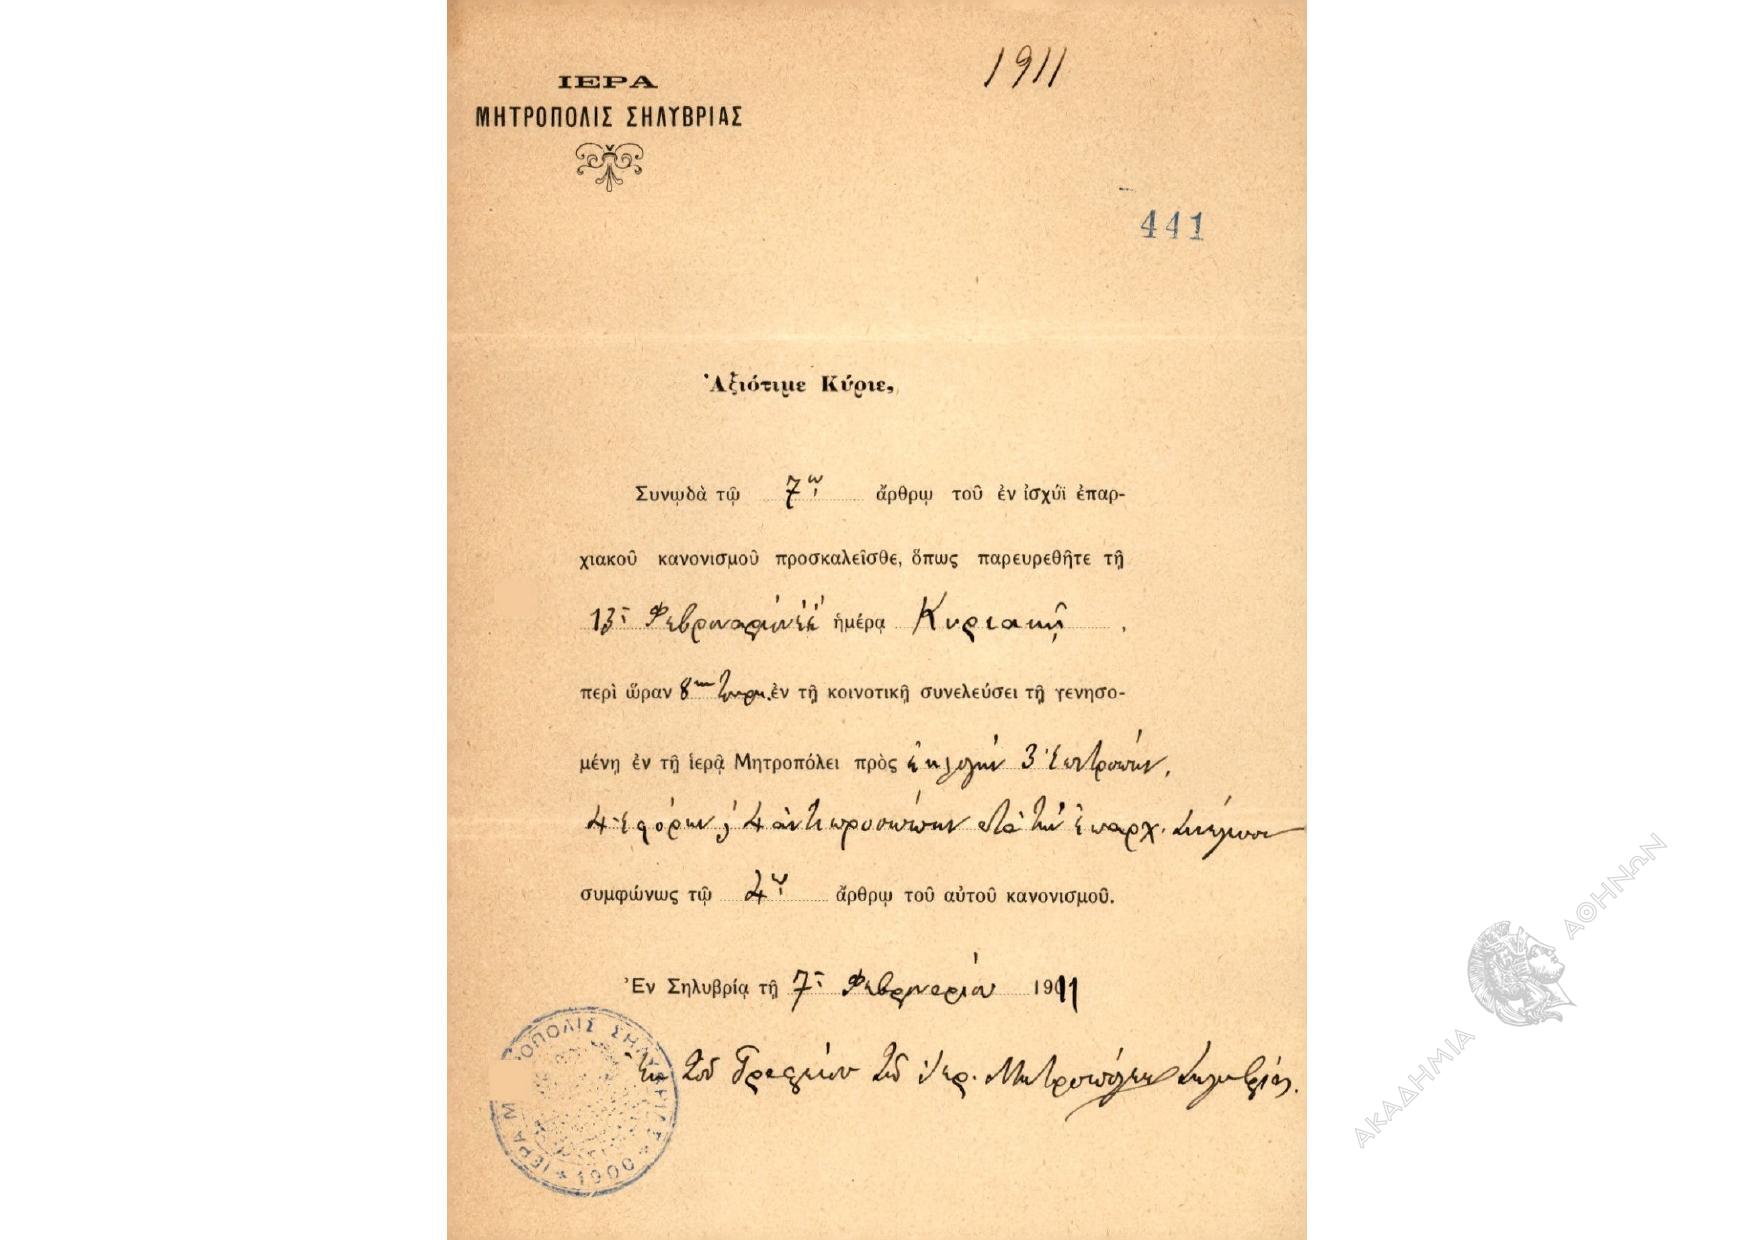 1911
ΙΕΡΑ
ΜΗΤΡΟΠΟΛΙΣ ΣΗΛΥΒΡΙΑΣ
441
Ἀξιότιμε Κύριε,
Συνῳδὰ τῷ 7ῳ ἄρθρῳ τοῦ ἐν ἰσχύϊ ἐπαρ-
χιακοῦ κανονισμοῦ προσκαλεῖσθε, ὅπως παρευρεθῆτε τῇ
13ῃ Φεβρουαρίου ἡμέρᾳ Κυριακῇ,
περὶ ὥραν 8ην ἐν τῇ κοινοτικῇ συνελεύσει τῇ γενησο-
μένῃ ἐν τῇ ἱερᾷ Μητροπόλει πρὸς ἐκλογὴν 3 ἐπιτρόπων,
4 ἐφόρων, 4 ἀντιπροσώπων διὰ τὴν ἐπαρχ. Συνέλευσιν
συμφώνως τῷ 4ῳ ἄρθρῳ τοῦ αὐτοῦ κανονισμοῦ.
Ἐν Σηλυβρίᾳ τῇ 7ῃ Φεβρουαρίου 1911
Ἐκ τοῦ Γραφείου τῆς Ἱερ. Μητροπόλεως Σηλυβρίας.
ΙΕΡΑ Μ ΟΠΟΛΙΣ ΣΗΛΥΒΡΙΑΣ * 1900 *
ΑΚΑΔΗΜΙΑ ΑΘΗΝΩΝ